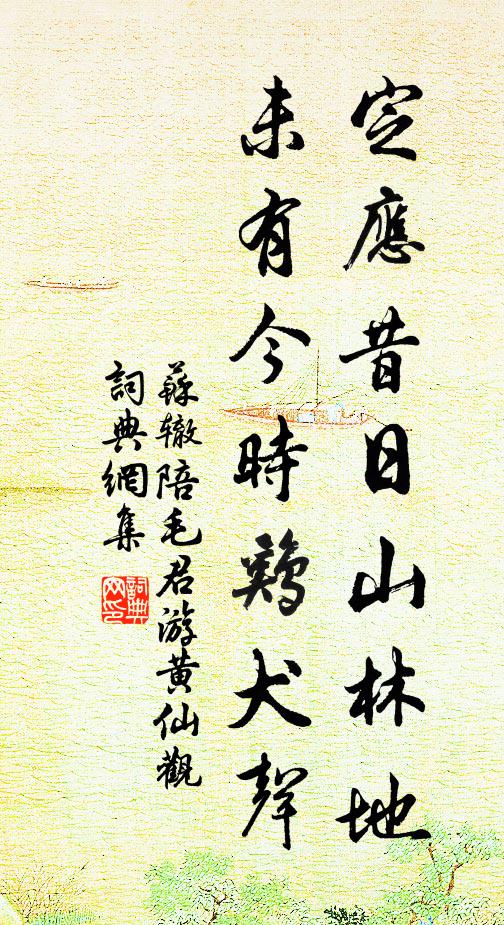 定應昔日山林地
未有今時鷄犬聲
蘇辙陪毛君游黄仙觀
詞典網集
詞典網印